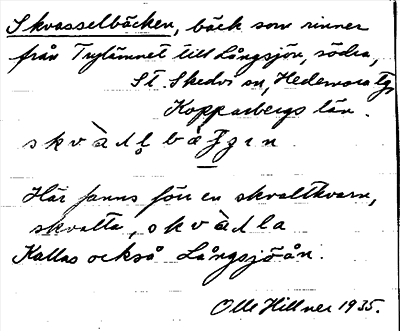 Skvasselbäcken, bäck som rinner
från Trytämnet till Långsjön, södra,
St. Skedvi sn, Hedemora tg
Kopparbergs län.
Här fanns förr en skvaltkvarn,
skvatta, skvàdla
Kallas också Långsjöån.
Olle Hillner 1935.